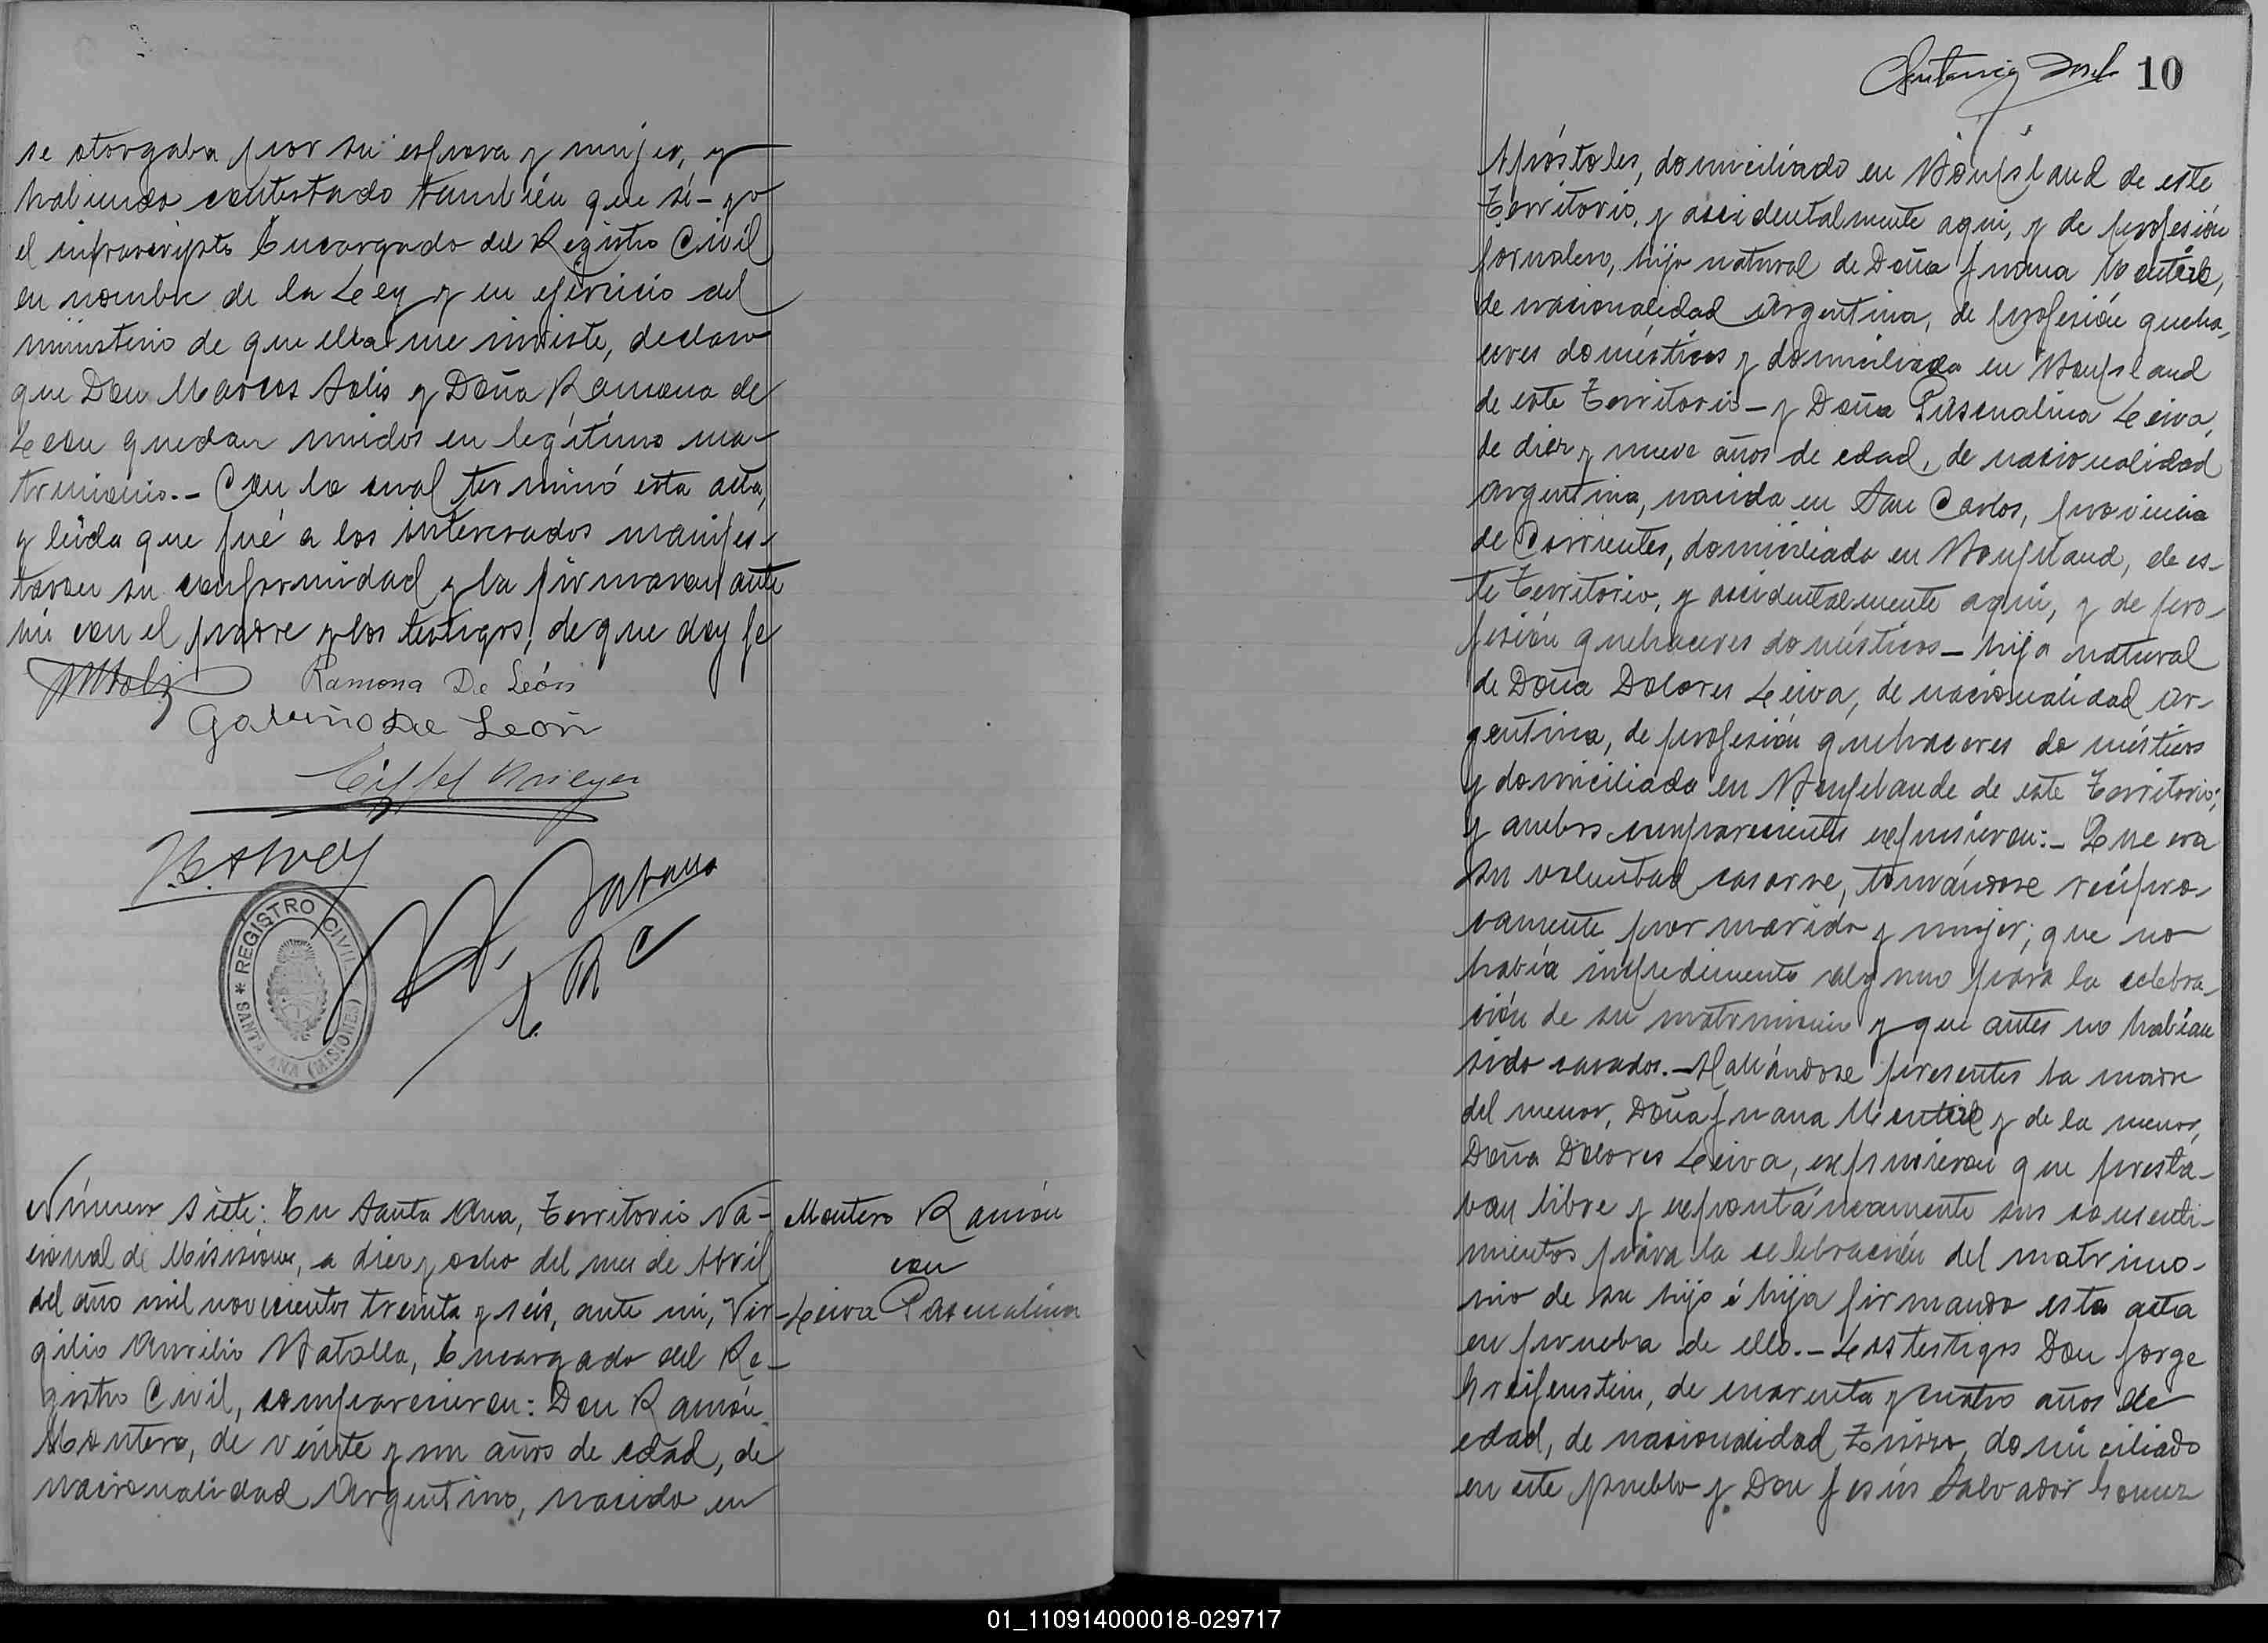 se otorgaba por su esposa y mujer, y
habiendo contestado también que sí - yo
el infrascripto Encargado del Registro Civil
en nombre de la Ley y en ejercicio del
ministerio de que ella me inviste, declaro
que Don Marcos Solis y Doña Ramona de
Leon quedan unidos en legítimo ma-
trimonio.- Con lo cual terminó esta acta,
y leída que fué a los interesados manifes-
taron su conformidad y la firmaron ante
mi con el padre y los testigos, de que doy fe
MSolis Ramona De León
Gabino De León
REGISTRO CIVIL
* SANTA ANA (MISIONES)
Número siete: En Santa Ana, Territorio Na-
cional de Misisiones, a diez y ocho del mes de Abril
del año mil novecientos treinta y seis, ante mi, Vir-
gilio Aurilio Natalla, Encargado del Re-
gistro Civil, comparecieron: Don Ramón
Montero, de veinte y un años de edad, de
nacionalidad Argentino, nacido en
Montero Ramón
con
Leiva Pascualina
10
Apóstoles, domiciliado en Bonpland de este
Territorio, y accidentalmente aqui, y de profesión
jornalero, hijo natural de Doña Juana
de nacionalidad Argentina, de profesión queha-
ceres domésticos y domiciliada en Bonpland
de este Territorio - y Doña Pascualina Leiva,
de diez y nueve años de edad, de nacionalidad
Argentina, nacida en San Carlos, provincia
de Corrientes, domiciliada en Bonpland, de es-
te Territorio, y accidentalmente aqui, y de pro-
fesión quehaceres domésticos - hija natural
de Doña Dolores Leiva, de nacionalidad Ar-
gentina, de profesión quehaceres domésticos
y domiciliada en Bonplande de este Territorio;
y ambos comparecientes expusieron:- Que era
su voluntad casarse, tomándose recípro-
camente por marido y mujer; que no
había impedimento alguno para la celebra-
ción de su matrimonio y que antes no habían
sido casados.- Hallándose presentes la madre
del menor, Doña Juana y de la menor,
Doña Dolores Leiva, expusieron que presta-
ban libre y expontáneamente sus consenti-
mientos para la celebración del matrimo-
nio de su hijo é hija firmando esta acta
en prueba de ello.- Los testigos Don Jorge
Greifenstein, de cuarenta y cuatro años de
edad, de nacionalidad Suizo, domiciliado
en este pueblo y Don Jesús Salvador Gomez
01_110914000018-029717